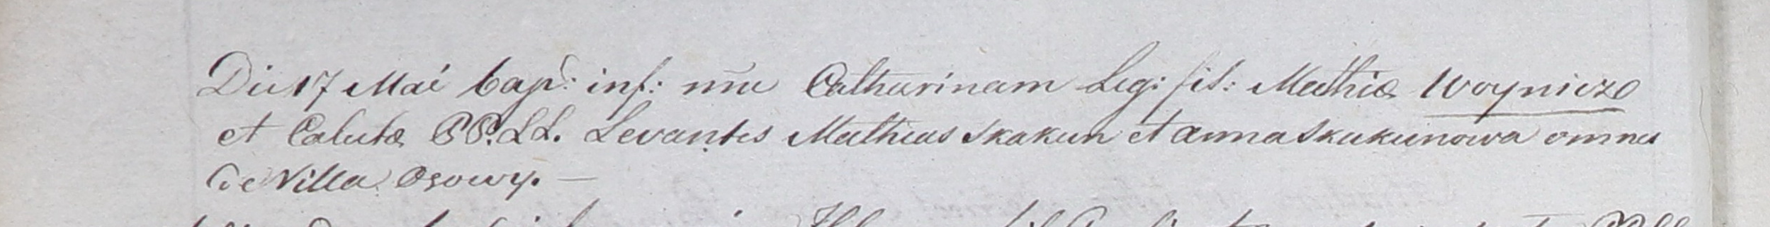 Die 17 Mai bapt: inf: nne Catharinam Leg: fil: Mathiæ Woynicz
et Calutæ PP. LL. Levantes Mathias Skakun et Anna Skakunowa omnes
de Villa Osowy. —